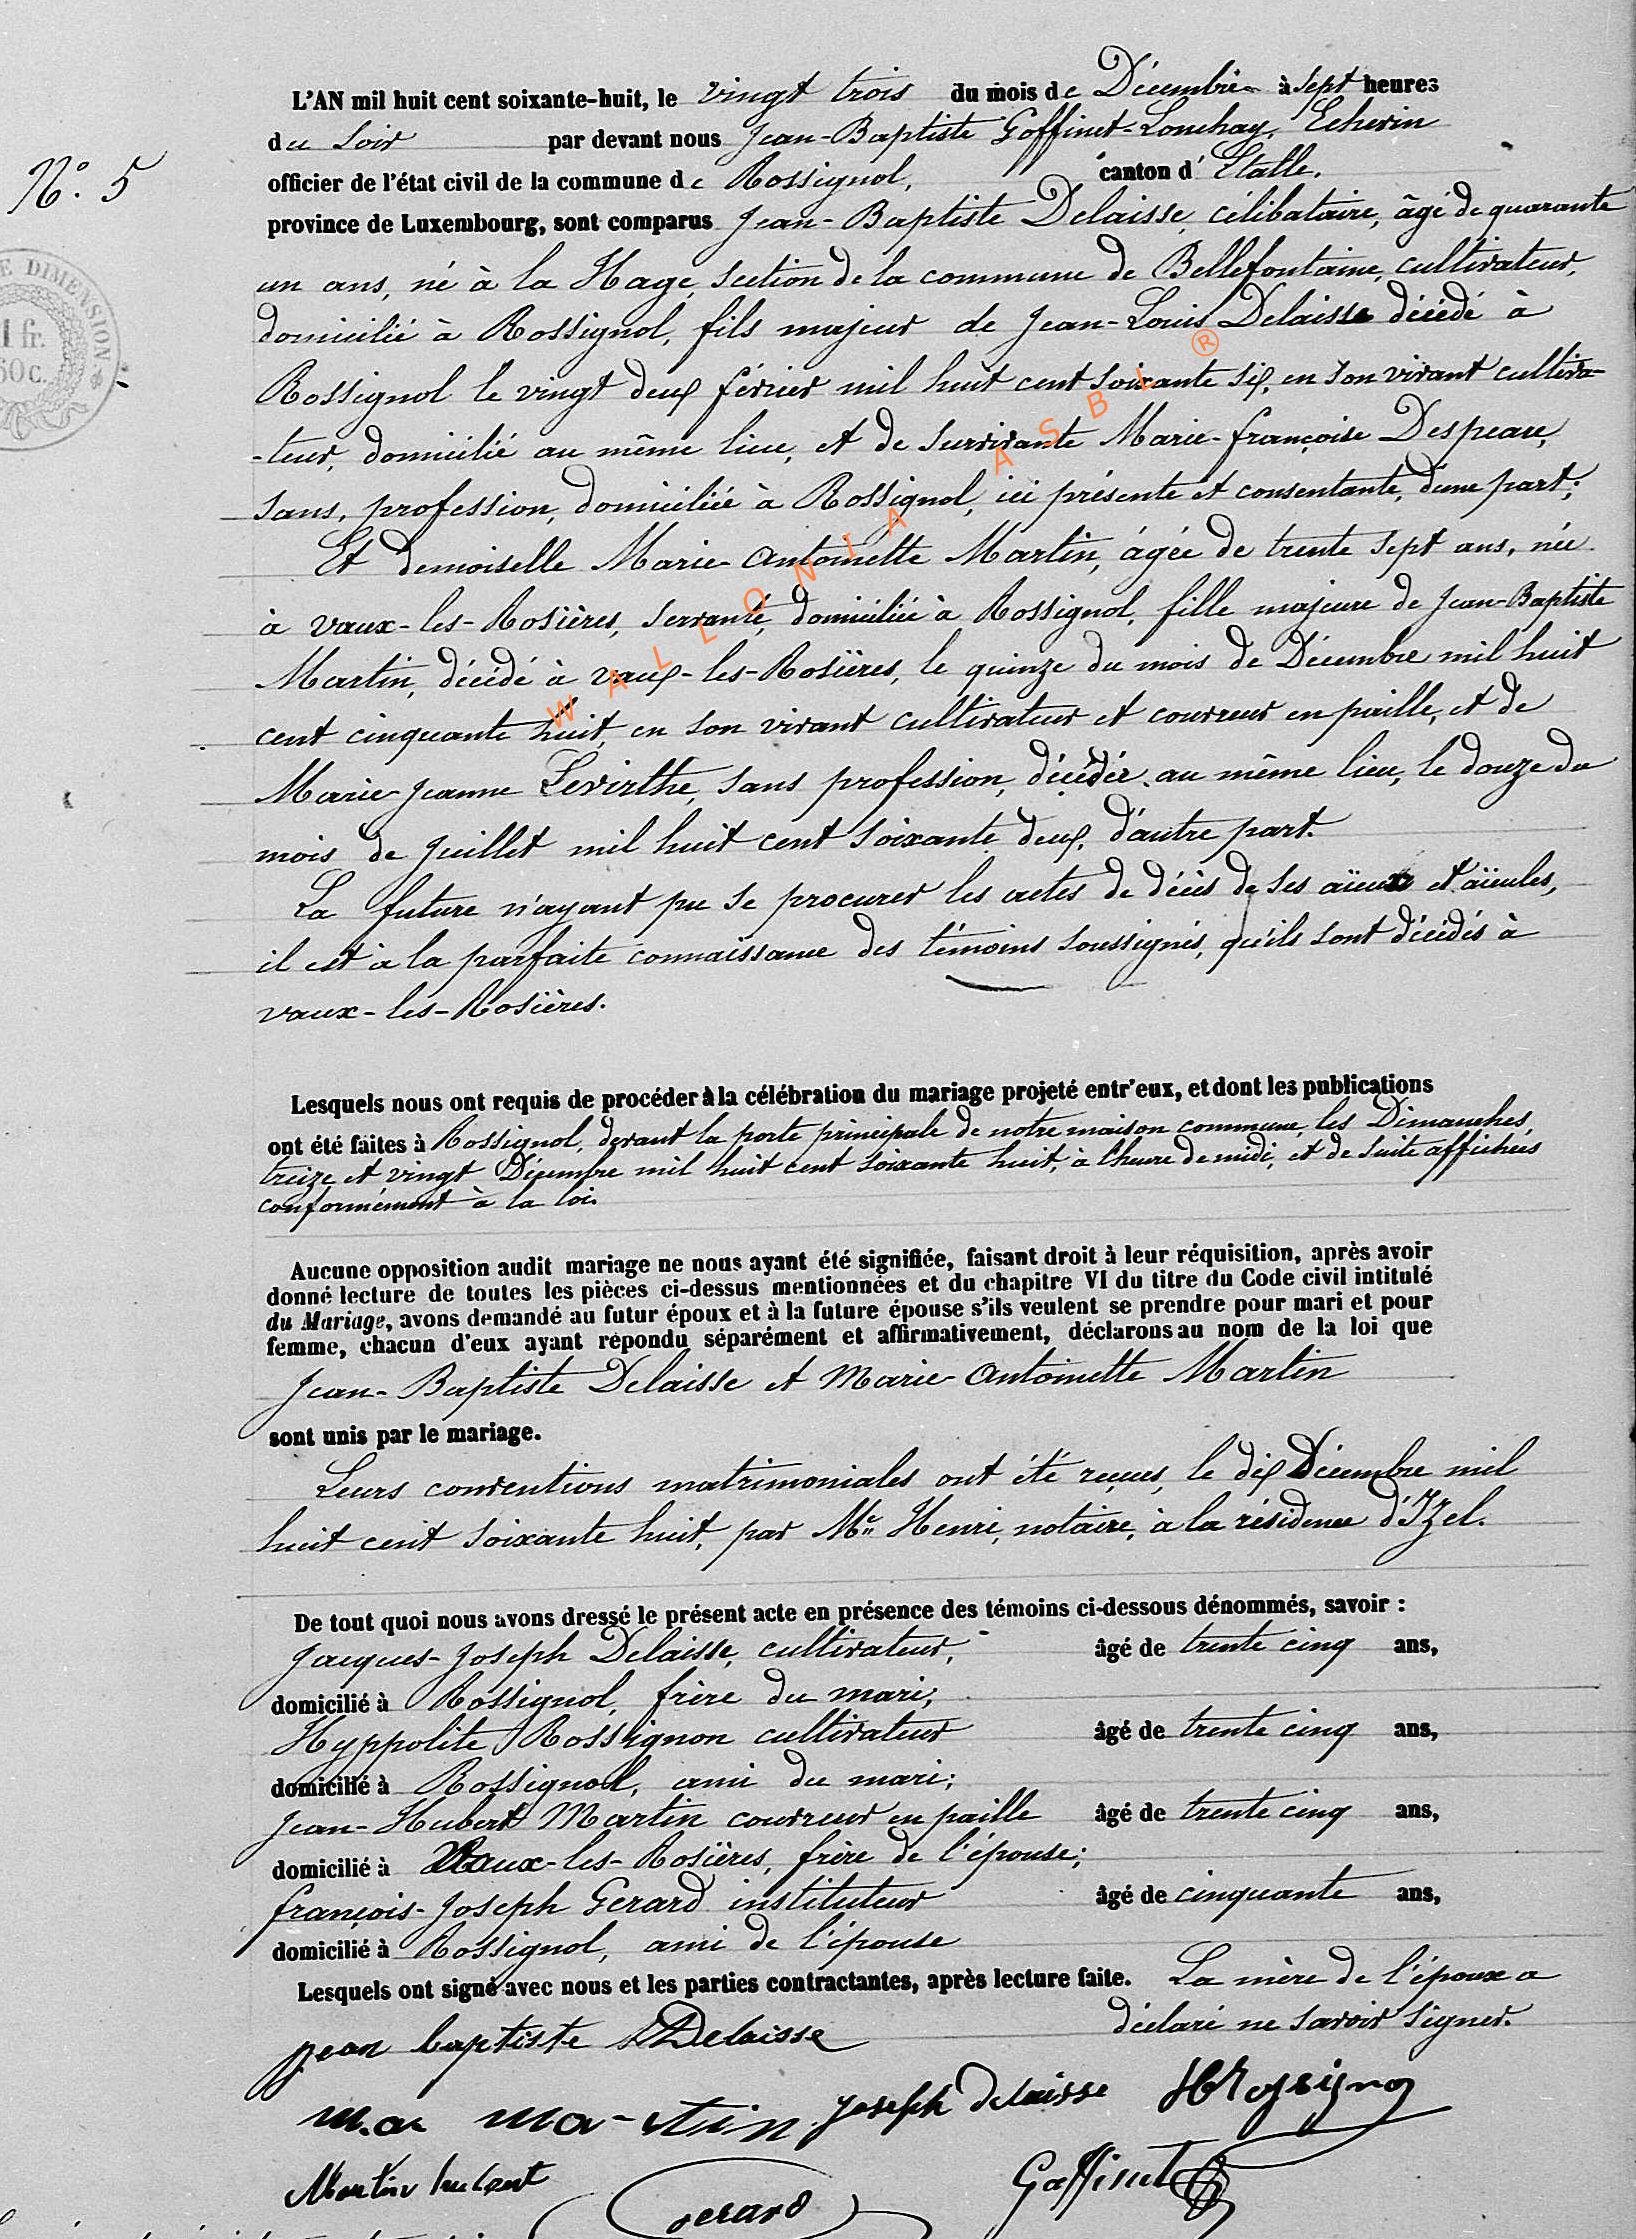 L'AN mil huit cent soixante-huit, le vingt trois du mois de Décembre à sept heures
du soir par devant nous Jean-Baptiste Goffinet-Lonchay, Echevin
officier de l'état civil de la commune de Rossignol, canton d'Etalle.
N° 5
province de Luxembourg, sont comparus Jean-Baptiste Delaisse, célibataire, âgé de quarante
un ans, né à la Hage, section de la commune de Bellefontaine, cultivateur,
E DIMENSION
1 fr.
60c.
domicilié à Rossignol, fils majeur de Jean-Louis Delaisse décédé à
Rossignol le vingt deux février mil huit cent soixante six, en son vivant cultiva-
-teur, domicilié au même lieu, et de survivante Marie-françoise Despeaux,
sans, profession, domiciliée à Rossignol, ici présente et consentante, d'une part;
Et demoiselle Marie-Antoinette Martin, âgée de trente sept ans, née
à Vaux-les-Rosières, servante, domiciliée à Rossignol, fille majeure de Jean-Baptiste
Martin, décédé à Vaux-les-Rosières, le quinze du mois de Décembre mil huit
cent cinquante huit, en son vivant cultivateur et couvreur en paille, et de
Marie-Jeanne Levirthe, sans profession, décédée au même lieu, le douze du
mois de Juillet mil huit cent soixante deux, d'autre part.
La future n'ayant pu se procurer les actes de décès de ses aïeux et aïeules,
il est à la parfaite connaissance des témoins soussignés, qu'ils sont décédés à
vaux-les-Rosières.
WALLONIA ASBL ®
Lesquels nous ont requis de procéder à la célébration du mariage projeté entr'eux, et dont les publications
ont été faites à Rossignol, devant la porte principale de notre maison commune, les Dimanches,
treize et vingt Décembre mil huit cent soixante huit, à l'heure de midi, et de suite affichées
conformément à la loi.
Aucune opposition audit mariage ne nous ayant été signifiée, faisant droit à leur réquisition, après avoir
donné lecture de toutes les pièces ci-dessus mentionnées et du chapitre VI du titre du Code civil intitulé
du Mariage, avons demandé au futur époux et à la future épouse s'ils veulent se prendre pour mari et pour
femme, chacun d'eux ayant répondu séparément et affirmativement, déclarons au nom de la loi que
Jean-Baptiste Delaisse et Marie-Antoinette Martin
sont unis par le mariage.
Leurs conventions matrimoniales ont été reçues, le dix Décembre mil
huit cent soixante huit, par Me Henri, notaire, à la résidence d'Izel.
De tout quoi nous avons dressé le présent acte en présence des témoins ci-dessous dénommés, savoir :
Jacques-Joseph Delaisse, cultivateur, âgé de trente cinq ans,
domicilié à Rossignol, frère du mari;
Hyppolite Rossignon cultivateur âgé de trente cinq ans,
domicilié à Rossignol, ami du mari;
Jean-Hubert Martin couvreur en paille âgé de trente cinq ans,
domicilié à Vaux-les-Rosières, frère de l'épouse;
françois-Joseph Gerard instituteur âgé de cinquante ans,
domicilié à Rossignol, ami de l'épouse
Lesquels ont signé avec nous et les parties contractantes, après lecture faite. La mère de l'époux a
déclaré ne savoir signer.
jean baptiste Delaisse
m.a martin joseph delaisse HRossignon
Martin hubert Gerard Goffinet